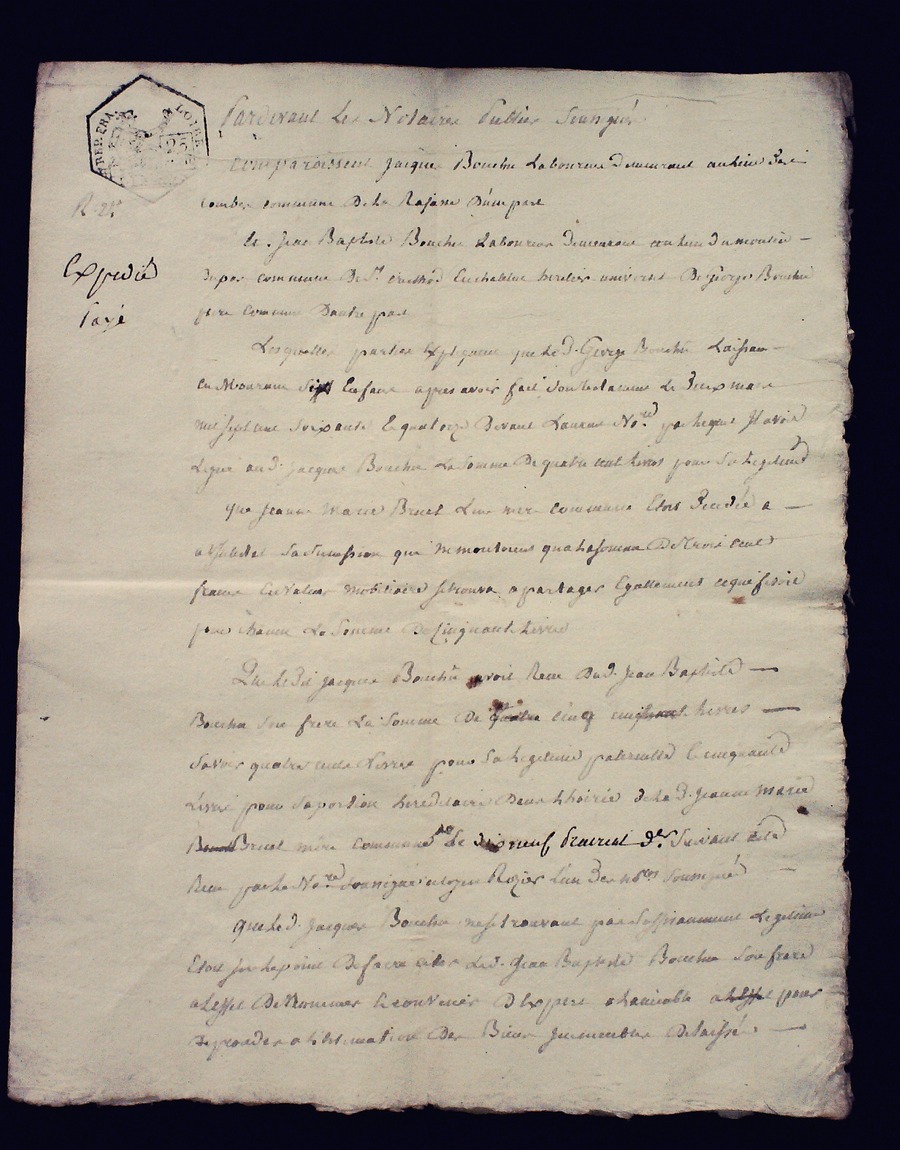 REP. FRA. LOIRE
25
Pardevant Les Notaires Publics Soussignés
Comparoissent Jacques Bouchu Laboureur Demeurant au lieu
combes commune De La Rajasse D'une part
Et Jean Baptiste Bouchu Laboureur Demeurant au lieu du
commune De St. heritier universel De George Bouchu
Expedié
Payé
pere commun D'autre part
Lesquelles parties Expliquent que Le d. George Bouchu Laissa
En Mourant Sept Enfans apres avoir fait Son testament Le Deux mars
mil sept cent Soixante Et quatorze Devant Laurent No.re par lequel Il avoit
Legué au d. Jacques Bouchu La Somme De quatre cent livres pour Sa Legitime
que Jeanne Marie Bruet Leur mere commune Etoit Decedée
Sa Succession qui ne montoit qu'a la somme De Trois Cent
francs En Valeur Mobiliaire Se trouva a partager Egallement ce qui faisoit
pour chacun La Somme De Cinquante Livres
Que Le Dit Jacques Bouchu avoit Recu Du d. Jean Baptiste
Bouchu Son frere La Somme De quatre cent cinquante Livres
Savoir quatre cents Livres pour Sa Legitime paternelle Et cinquante
Livres pour Sa portion hereditaire Dans L'hoirie de la d. Jeanne Marie
Bruet mere commune Le dix neuf Prairial d.er Suivant acte
Recu par Le No.re Rozier L'un Des n.res Soussignés
que Le d. Jacques Bouchu ne se trouvant pas Suffisamment Legitimé
Etoit Sur Le point De faire citer Le d. Jean Baptiste Bouchu Son frere
a L'effet De Nommer Et convenir D'Expert a L'amiable pour
proceder a L'Estimation Des Biens Immeubles Delaissés